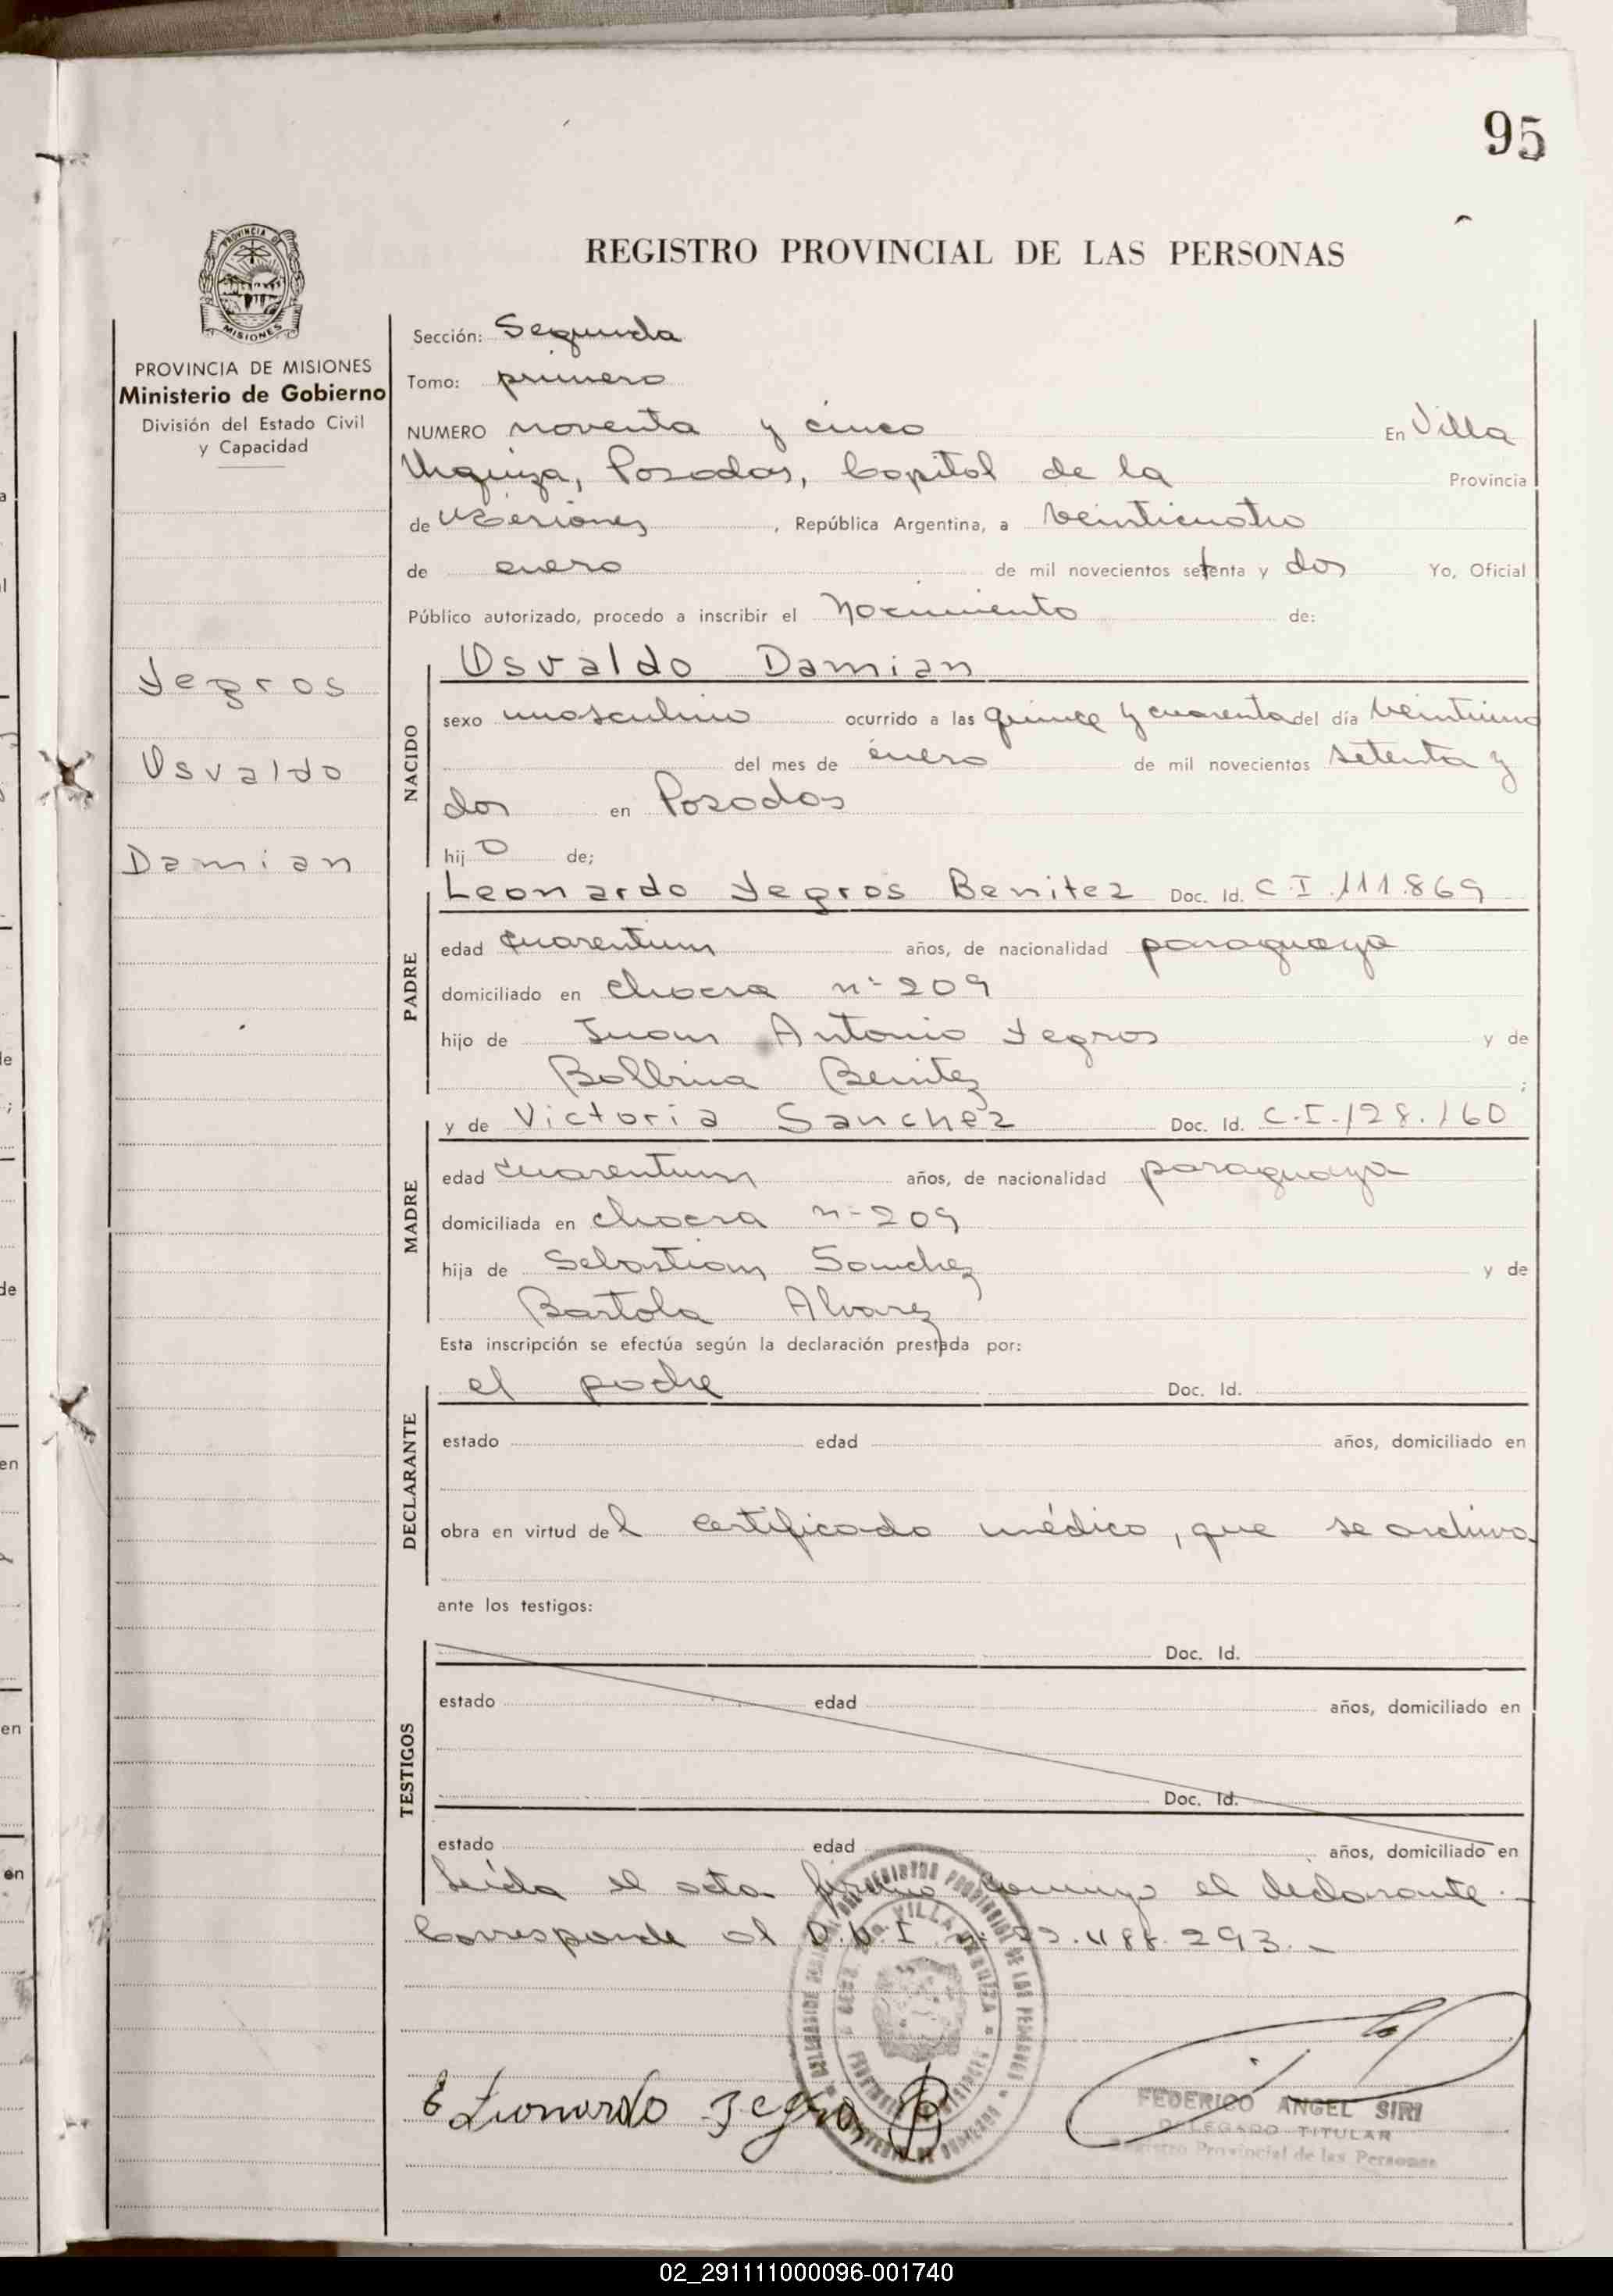 95
PROVINCIA DE
MISIONES
REGISTRO PROVINCIAL DE LAS PERSONAS
PROVINCIA DE MISIONES
Ministerio de Gobierno
División del Estado Civil
y Capacidad
Yegros
Osvaldo
Damian
Sección: Segunda
Tomo: primero
NUMERO noventa y cinco En Villa
Urquiza, Posadas, Capital de la Provincia
de Misiones, República Argentina, a veinticuatro
de enero de mil novecientos setenta y dos Yo, Oficial
Público autorizado, procedo a inscribir el Nacimiento de:
NACIDO
Osvaldo Damian
sexo masculino ocurrido a las quince y cuarenta del día veintiuno
del mes de enero de mil novecientos setenta y
dos en Posadas
hijo de;
PADRE
Leonardo Yegros Benitez Doc. Id. C.I. 111.869
edad cuarentiun años, de nacionalidad paraguaya
domiciliado en chacra n° 209
hijo de Juan Antonio Yegros y de
Balbina Benitez ;
MADRE
y de Victoria Sanchez Doc. Id. C.I. 128.160
edad cuarentiun años, de nacionalidad paraguaya
domiciliada en chacra n° 209
hija de Sebastian Sanchez y de
Bartola Alvarez
Esta inscripción se efectúa según la declaración prestada por:
DECLARANTE
el padre Doc. Id.
estado edad años, domiciliado en
obra en virtud del certificado médico, que se archiva
ante los testigos:
TESTIGOS
Doc. Id.
estado edad años, domiciliado en
Doc. Id.
estado edad años, domiciliado en
Leída el acta firma conmigo el declarante.-
Corresponde al D.N.I. 293.-
VILLA URQUIZA
Leonardo Yegros B
FEDERICO ANGEL SIRI
DELEGADO TITULAR
Registro Provincial de las Personas
02_291111000096-001740